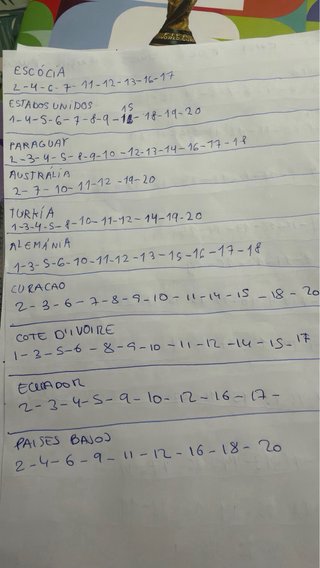 ESCÓCIA
2-4-6-7-11-12-13-16-17
ESTADOS UNIDOS
15
1-4-5-6-7-8-9-12-18-19-20
PARAGUAY
2-3-4-5-8-9-10-12-13-14-16-17-18
AUSTRÁLIA
2-7-10-11-12-19-20
TURKÍA
1-3-4-5-8-10-11-12-14-19-20
ALEMÁNIA
1-3-5-6-10-11-12-13-15-16-17-18
CURACAO
2-3-6-7-8-9-10-11-14-15-18-20
COTE D'IVOIRE
1-3-5-6-8-9-10-11-12-14-15-17
ECUADOR
2-3-4-5-9-10-12-16-17-
PAISES BAJOS
2-4-6-9-11-12-16-18-20